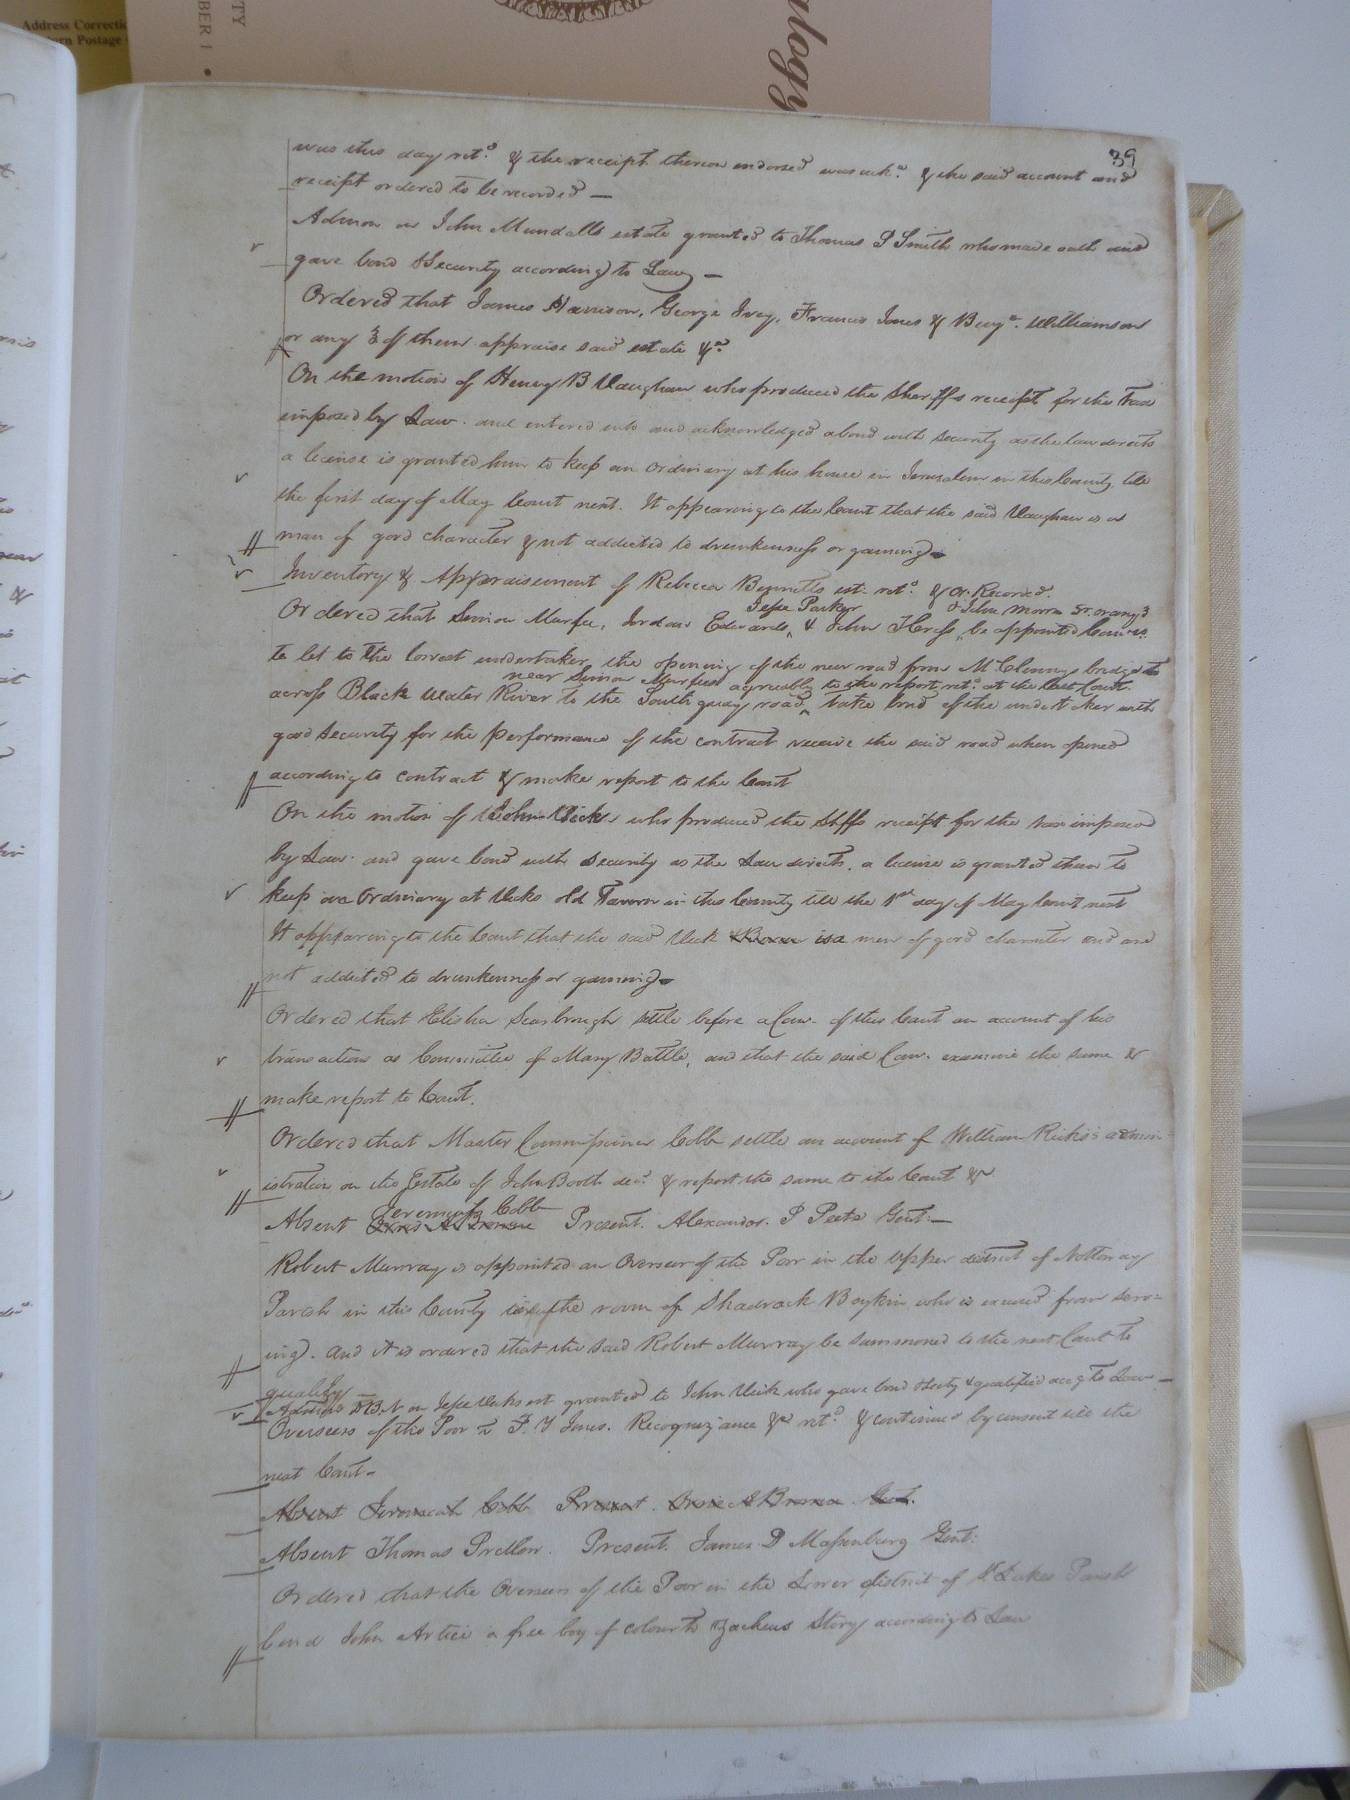 Address Correctio
urn Postage
TY
BER 1 •
alogy
39
was this day retd. & the receipt thereon endorsed was ackd. & the said account and
receipt ordered to be recorded —
Admon on John Mundalls estate granted to Thomas P Smith who made oath and
gave bond & Security according to Law —
Ordered that James Harrison, George Ivey, Francis Jones & Benja. Williamson
or any 3 of them appraise said estate &c.
On the motion of Henry B Vaughan who produced the Sheriffs receipt for the Tax
imposed by Law. and entered into and acknowledged a bond with security as the law directs
a license is granted him to keep an ordinary at his house in Jerusalem in this County till
the first day of May Court next. It appearing to the Court that the said Vaughan is a
man of good character & not addicted to drunkenness or gaming —
Inventory & Appraisement of Rebecca Bennetts est. retd. & Or. Record.
Jesse Parker & John Morris Sr. or any 3
Ordered that Simon Murfee, Jordan Edwards, & John be appointed Comrs.
to let to the lowest undertaker the opening of the new road from McClennys bridge
near Simon Murfees agreeably to the report retd. at the last Court
across Black Water River to the South quay road, take bond of the undertaker with
good security for the performance of the contract receive the said road when opened
according to contract & make report to the Court
On the motion of John Vick who produced the Shffs receipt for the tax imposed
by Law. and gave bond with security as the Law directs. a license is granted them to
keep an Ordinary at Vicks old Tavern in this County till the 1st day of May Court next
It appearing to the Court that the said Vick & Brown is a men of good character and are
not addicted to drunkenness or gaming —
Ordered that Elisha Scarbrough settle before a Com. of this Court an account of his
transactions as Committee of Mary Battle, and that the said Com. examine the same &
make report to Court.
Ordered that Master Commissioner Cobb settle an account of William Ricks's admin-
istration on the Estate of John Booth decd. & report the same to the Court &c
Jeremiah Cobb
Absent Orris A. Browne Present. Alexander. P Peete Gent: —
Robert Murray is appointed an Overseer of the Poor in the Upper district of Nottoway
Parish in this County in the room of Shadrack Boykin who is excused from serv=
ing. and it is ordered that the said Robert Murray be summoned to the next Court to
qualify
Admon D B N on Jesse Vicks est granted to John Vick who gave bond & Secty & qualified accg to Law —
Overseers of the Poor vs F. Y Jones. Recognizance &c retd. & continued by consent till the
next Court —
Absent Jeremiah Cobb Present. Orris A Browne Gent.
Absent Thomas Pretlow. Present. James D Massenburg Gent:
Ordered that the Overseers of the Poor in the Lower district of St Lukes Parish
bind John Artice a free boy of colour to Zacheus Story according to Law